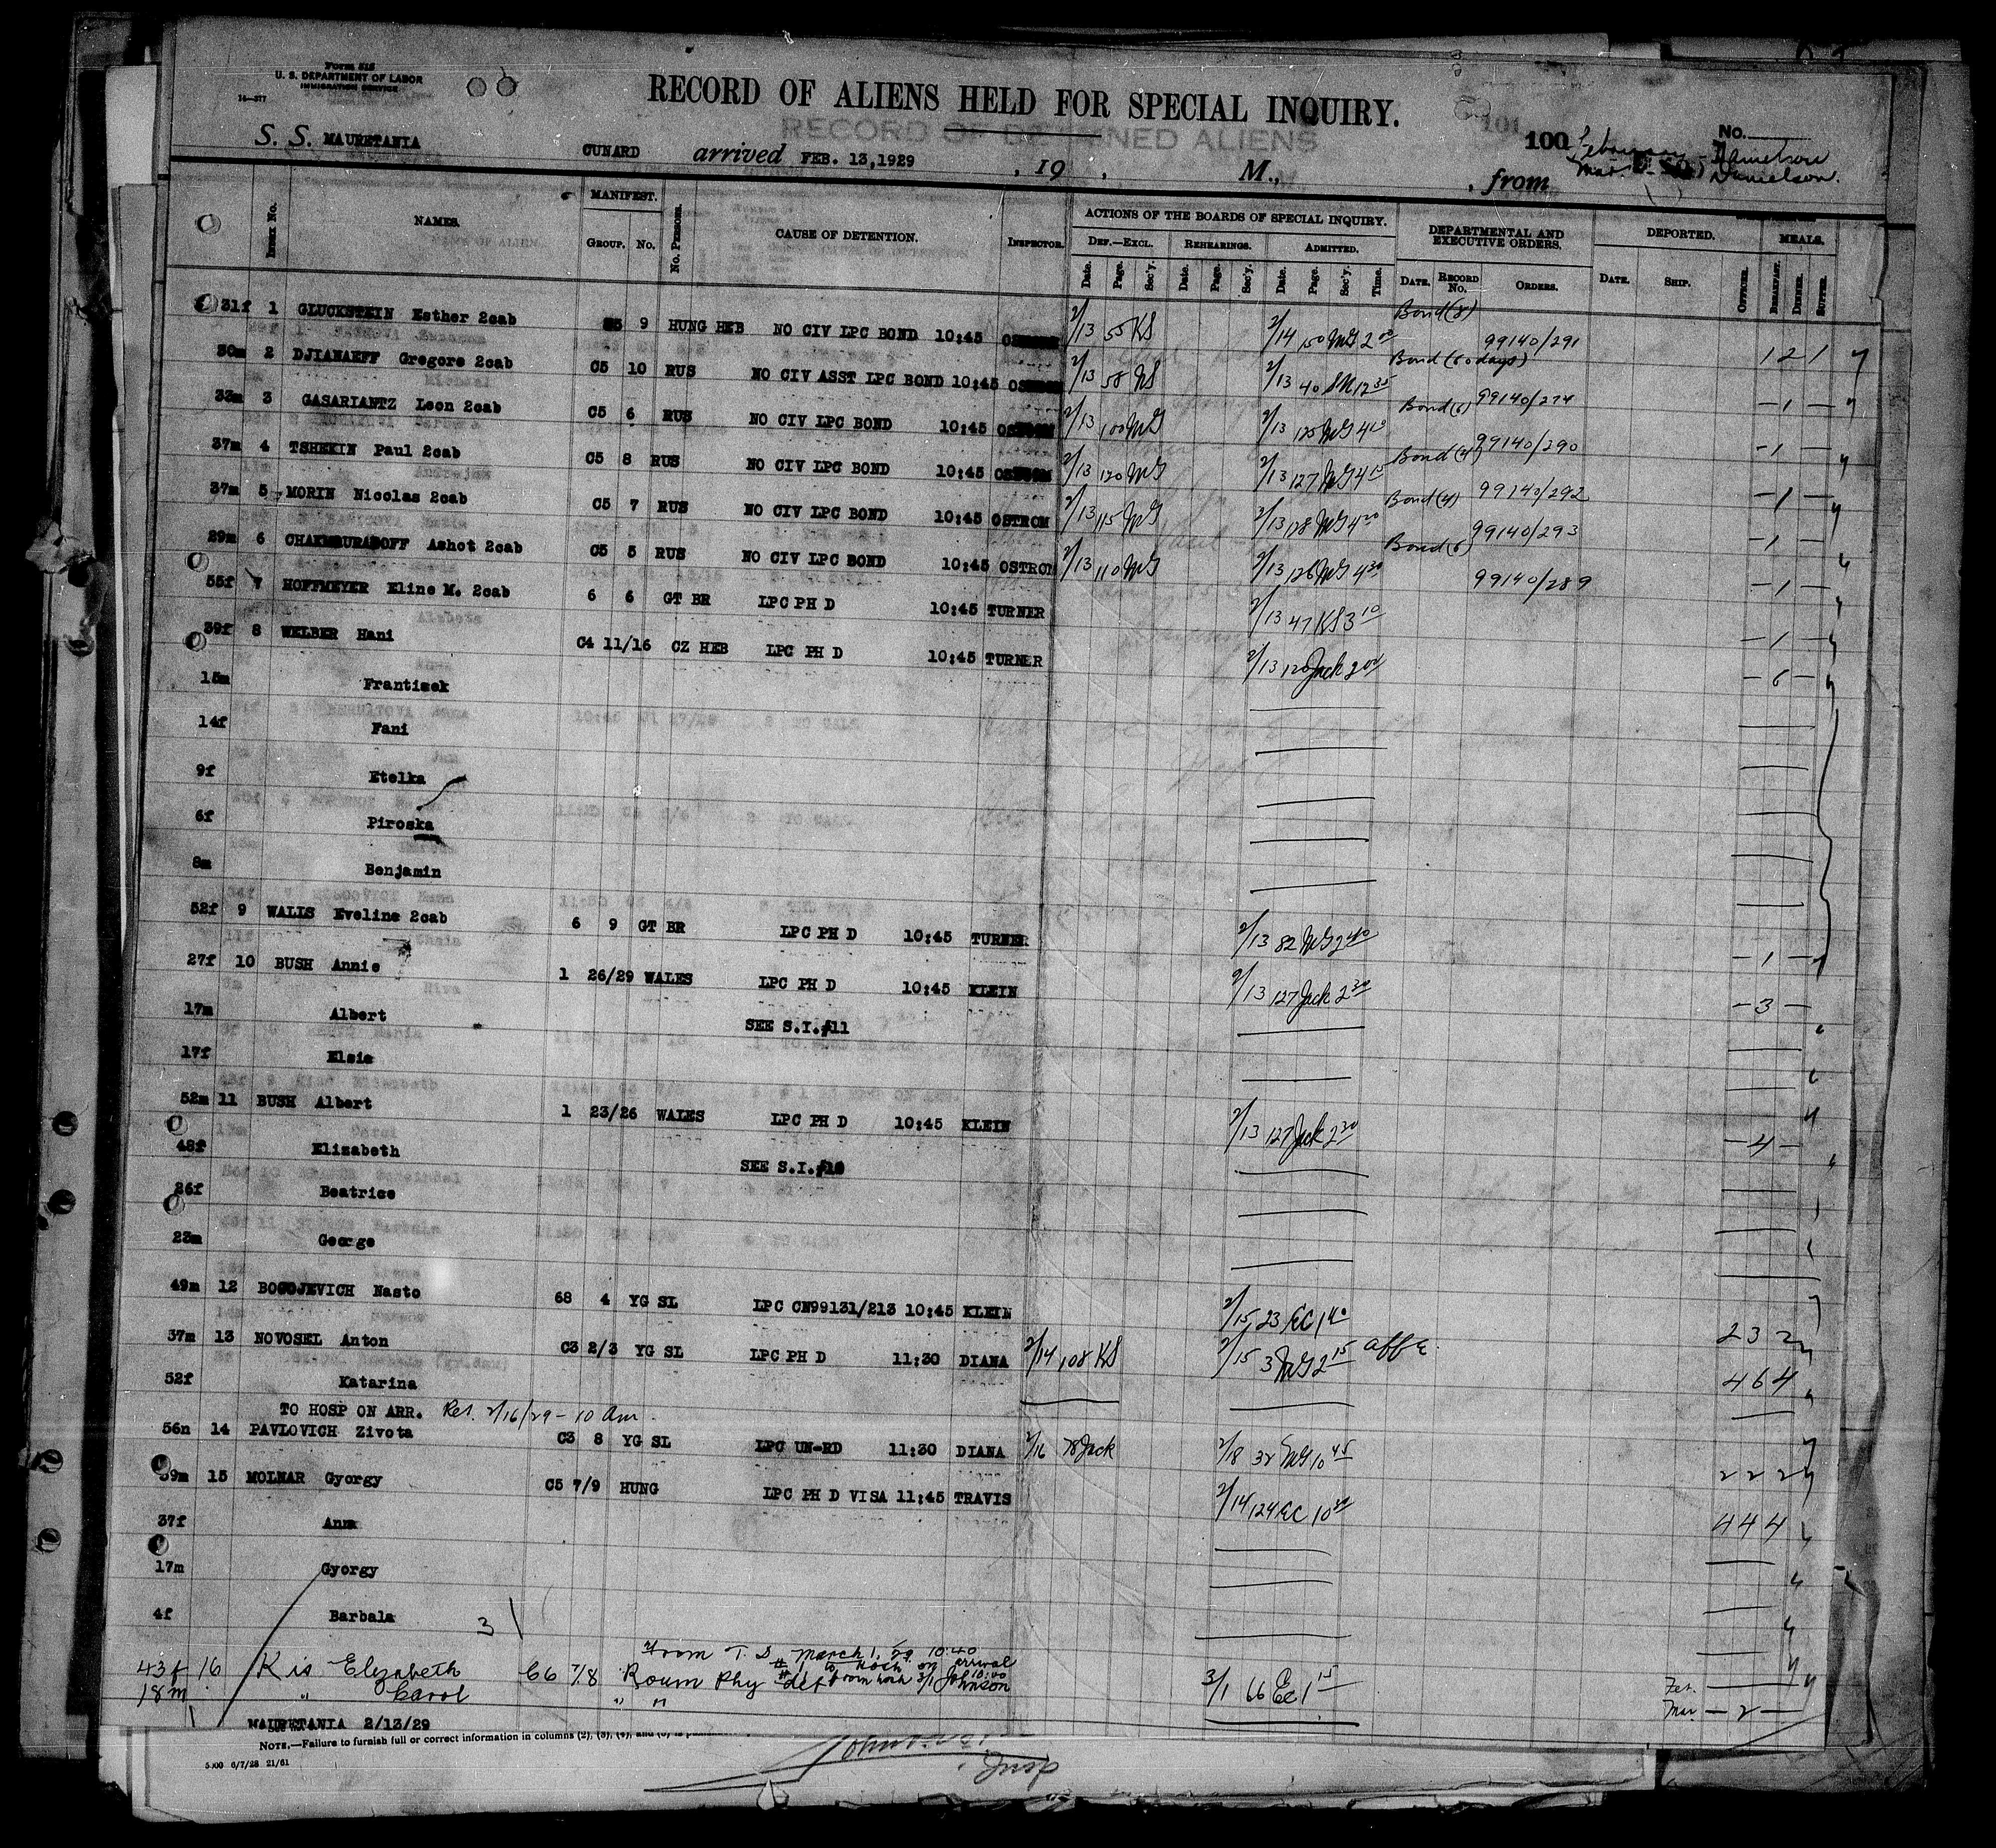 Form 515
U. S. DEPARTMENT OF LABOR
IMMIGRATION SERVICE
14—377
RECORD OF ALIENS HELD FOR SPECIAL INQUIRY.
RECORD OF DETAINED ALIENS
S. S. MAURETANIA CUNARD arrived FEB. 13,1929 , 19 , M., , from
101 100 No.
February - Danielson
Mar. Danielson.
Index No. NAMES. MANIFEST. GROUP. No. No. PERSONS. CAUSE OF DETENTION. INSPECTOR. ACTIONS OF THE BOARDS OF SPECIAL INQUIRY. DEPARTMENTAL AND EXECUTIVE ORDERS. DEPORTED. MEALS.
DEF.—EXCL. REHEARINGS. ADMITTED.
Date. Page. Sec'y. Date. Page. Sec'y. Date. Page. Sec'y. Time. DATE. RECORD No. ORDERS. DATE. SHIP. OFFICER. BREAKFAST. DINNER. SUPPER.
31f 1 GLUCKSTEIN Esther 2cab 9 HUNG HEB NO CIV LPC BOND 10:45 2/13 55 KS 2/14 150 MG 2 00 Bond (8) 99140/291 1 2 1
30m 2 DJIANAEFF Gregore 2cab C5 10 RUS NO CIV ASST LPC BOND 10:45 2/13 58 2/13 40 12 35 Bond (60 days) 99140/274 — 1 —
33m 3 GASARIANTZ Leon 2cab C5 6 RUS NO CIV LPC BOND 10:45 2/13 100 MG 2/13 125 MG 4 Bond (6) 99140/290 — 1 —
37m 4 TSHEKIN Paul 2cab C5 8 RUS NO CIV LPC BOND 10:45 2/13 120 MG 2/13 127 MG 4 15 Bond (4) 99140/292 — 1 —
37m 5 MORIN Nicolas 2cab C5 7 RUS NO CIV LPC BOND 10:45 OSTROM 2/13 115 MG 2/13 128 MG 4 20 Bond (4) 99140/293 — 1 —
29m 6 Ashot 2cab C5 5 RUS NO CIV LPC BOND 10:45 OSTROM 2/13 110 MG 2/13 126 MG 4 30 Bond (6) 99140/289 — 1 —
55f 7 HOFFMEYER Eline M. 2cab 6 6 GT BR LPC PH D 10:45 TURNER 2/13 47 KS 3 10 — 1 —
39f 8 WELBER Hani C4 11/16 CZ HEB LPC PH D 10:45 TURNER 2/13 120 Jack 2 00 — 6 —
15m Frantisek
14f Fani
9f Etelka
6f Piroska
8m Benjamin
52f 9 WALLS Eveline 2cab 6 9 GT BR LPC PH D 10:45 TURNER 2/13 82 MG 2 40 — 1 —
27f 10 BUSH Annie 1 26/29 WALES LPC PH D 10:45 KLEIN 2/13 127 Jack 2 30 — 3 —
17m Albert SEE S.I.#11
17f Elsie
52m 11 BUSH Albert 1 23/26 WALES LPC PH D 10:45 KLEIN 2/13 127 Jack 2 30 — 4 —
48f Elizabeth SEE S.I.#10
26f Beatrice
23m George
49m 12 BOGOJEVICH Nasto 68 4 YG SL LPC CN99131/213 10:45 KLEIN 2/15 23 EC 1 40 2 3 2
37m 13 NOVOSEL Anton C3 2/3 YG SL LPC PH D 11:30 DIANA 2/14 108 KS 2/15 3 MG 2 15 4 6 4
52f Katarina
TO HOSP ON ARR. Rel. 2/16/29 - 10 Am.
56m 14 PAVLOVICH Zivota C3 8 YG SL LPC UN-RD 11:30 DIANA 2/16 78 Jack 2/8 32 MG 10 45 2 2 2
39m 15 MOLNAR Gyorgy C5 7/9 HUNG LPC PH D VISA 11:45 TRAVIS 2/14 124 EC 10 30 4 4 4
37f Anna
17m Gyorgy
4f Barbala 3
from T. D. March 1, 29 10:40
43f 16 Kis Elizabeth C6 7/8 Roum Phy def from hosp 3/1 Johnson 3/1 66 EC 1 15 Feb.
18m " Carol " " Mar. — 2 —
MAURETANIA 2/13/29
NOTE.—Failure to furnish full or correct information in columns (2), (3), (4), and (6) is
5,000 6/7/28 21/61
Insp.